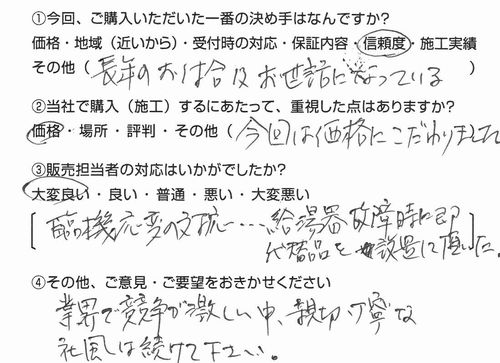 ①今回、ご購入いただいた一番の決め手はなんですか?
価格・地域（近いから）・受付時の対応・保証内容・信頼度・施工実績
その他（長年のお付合及お世話になっている）
②当社で購入（施工）するにあたって、重視した点はありますか?
価格・場所・評判・その他（今回は価格にこだわりました
③販売担当者の対応はいかがでしたか?
大変良い・良い・普通・悪い・大変悪い
臨機応変の対抗…給湯器故障時に即
代替品を設置して頂いた。
④その他、ご意見・ご要望をおきかせください
業界で競争が激しい中、親切丁寧な
社風は続けて下さい。